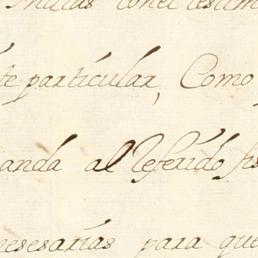 Indias con el testim
te particular, Como
anda al referido fis
nesesarias para que